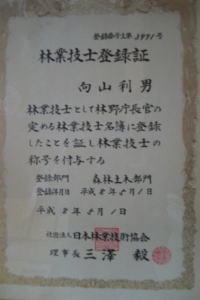 登録番号土第3991号
林業技士登録証
向山利男
林業技士として林野庁長官の
定める林業技士名簿に登録
したことを証し林業技士の
称号を付与する
登録部門 森林土木部門
登録年月日 平成8年8月1日
平成8年8月1日
社団法人日本林業技術協会
理事長 三澤 毅